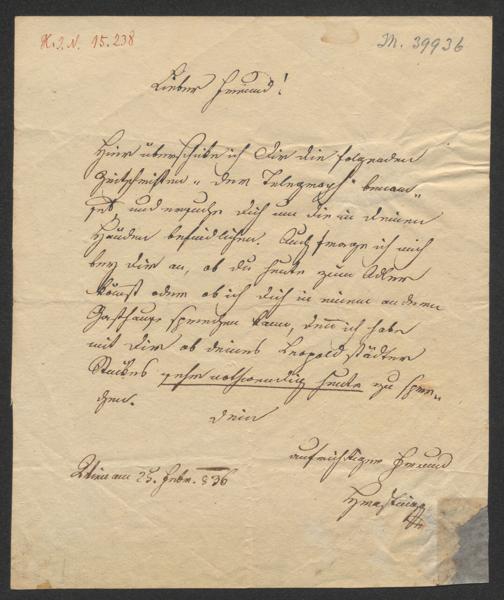 H.I.N. 15.238
M. 39936
Lieber Freund!
Hier überschicke ich Dir die folgenden
Zeitschriften „Der Telegraph" benam-
set, und ersuche Dich um die in Deinen
Händen befindlichen. Auch frage ich mich
bey Dir an, ob du heute zum Adler
kömst oder ob ich Dich in einem anderen
Gasthause sprechen kann, denn ich habe
mit Dir ob deines Leopoldstädter
sehr nothwendig heute zu spre-
chen.
Dein
aufrichtiger Freund
Wien am 25. Febr. 836